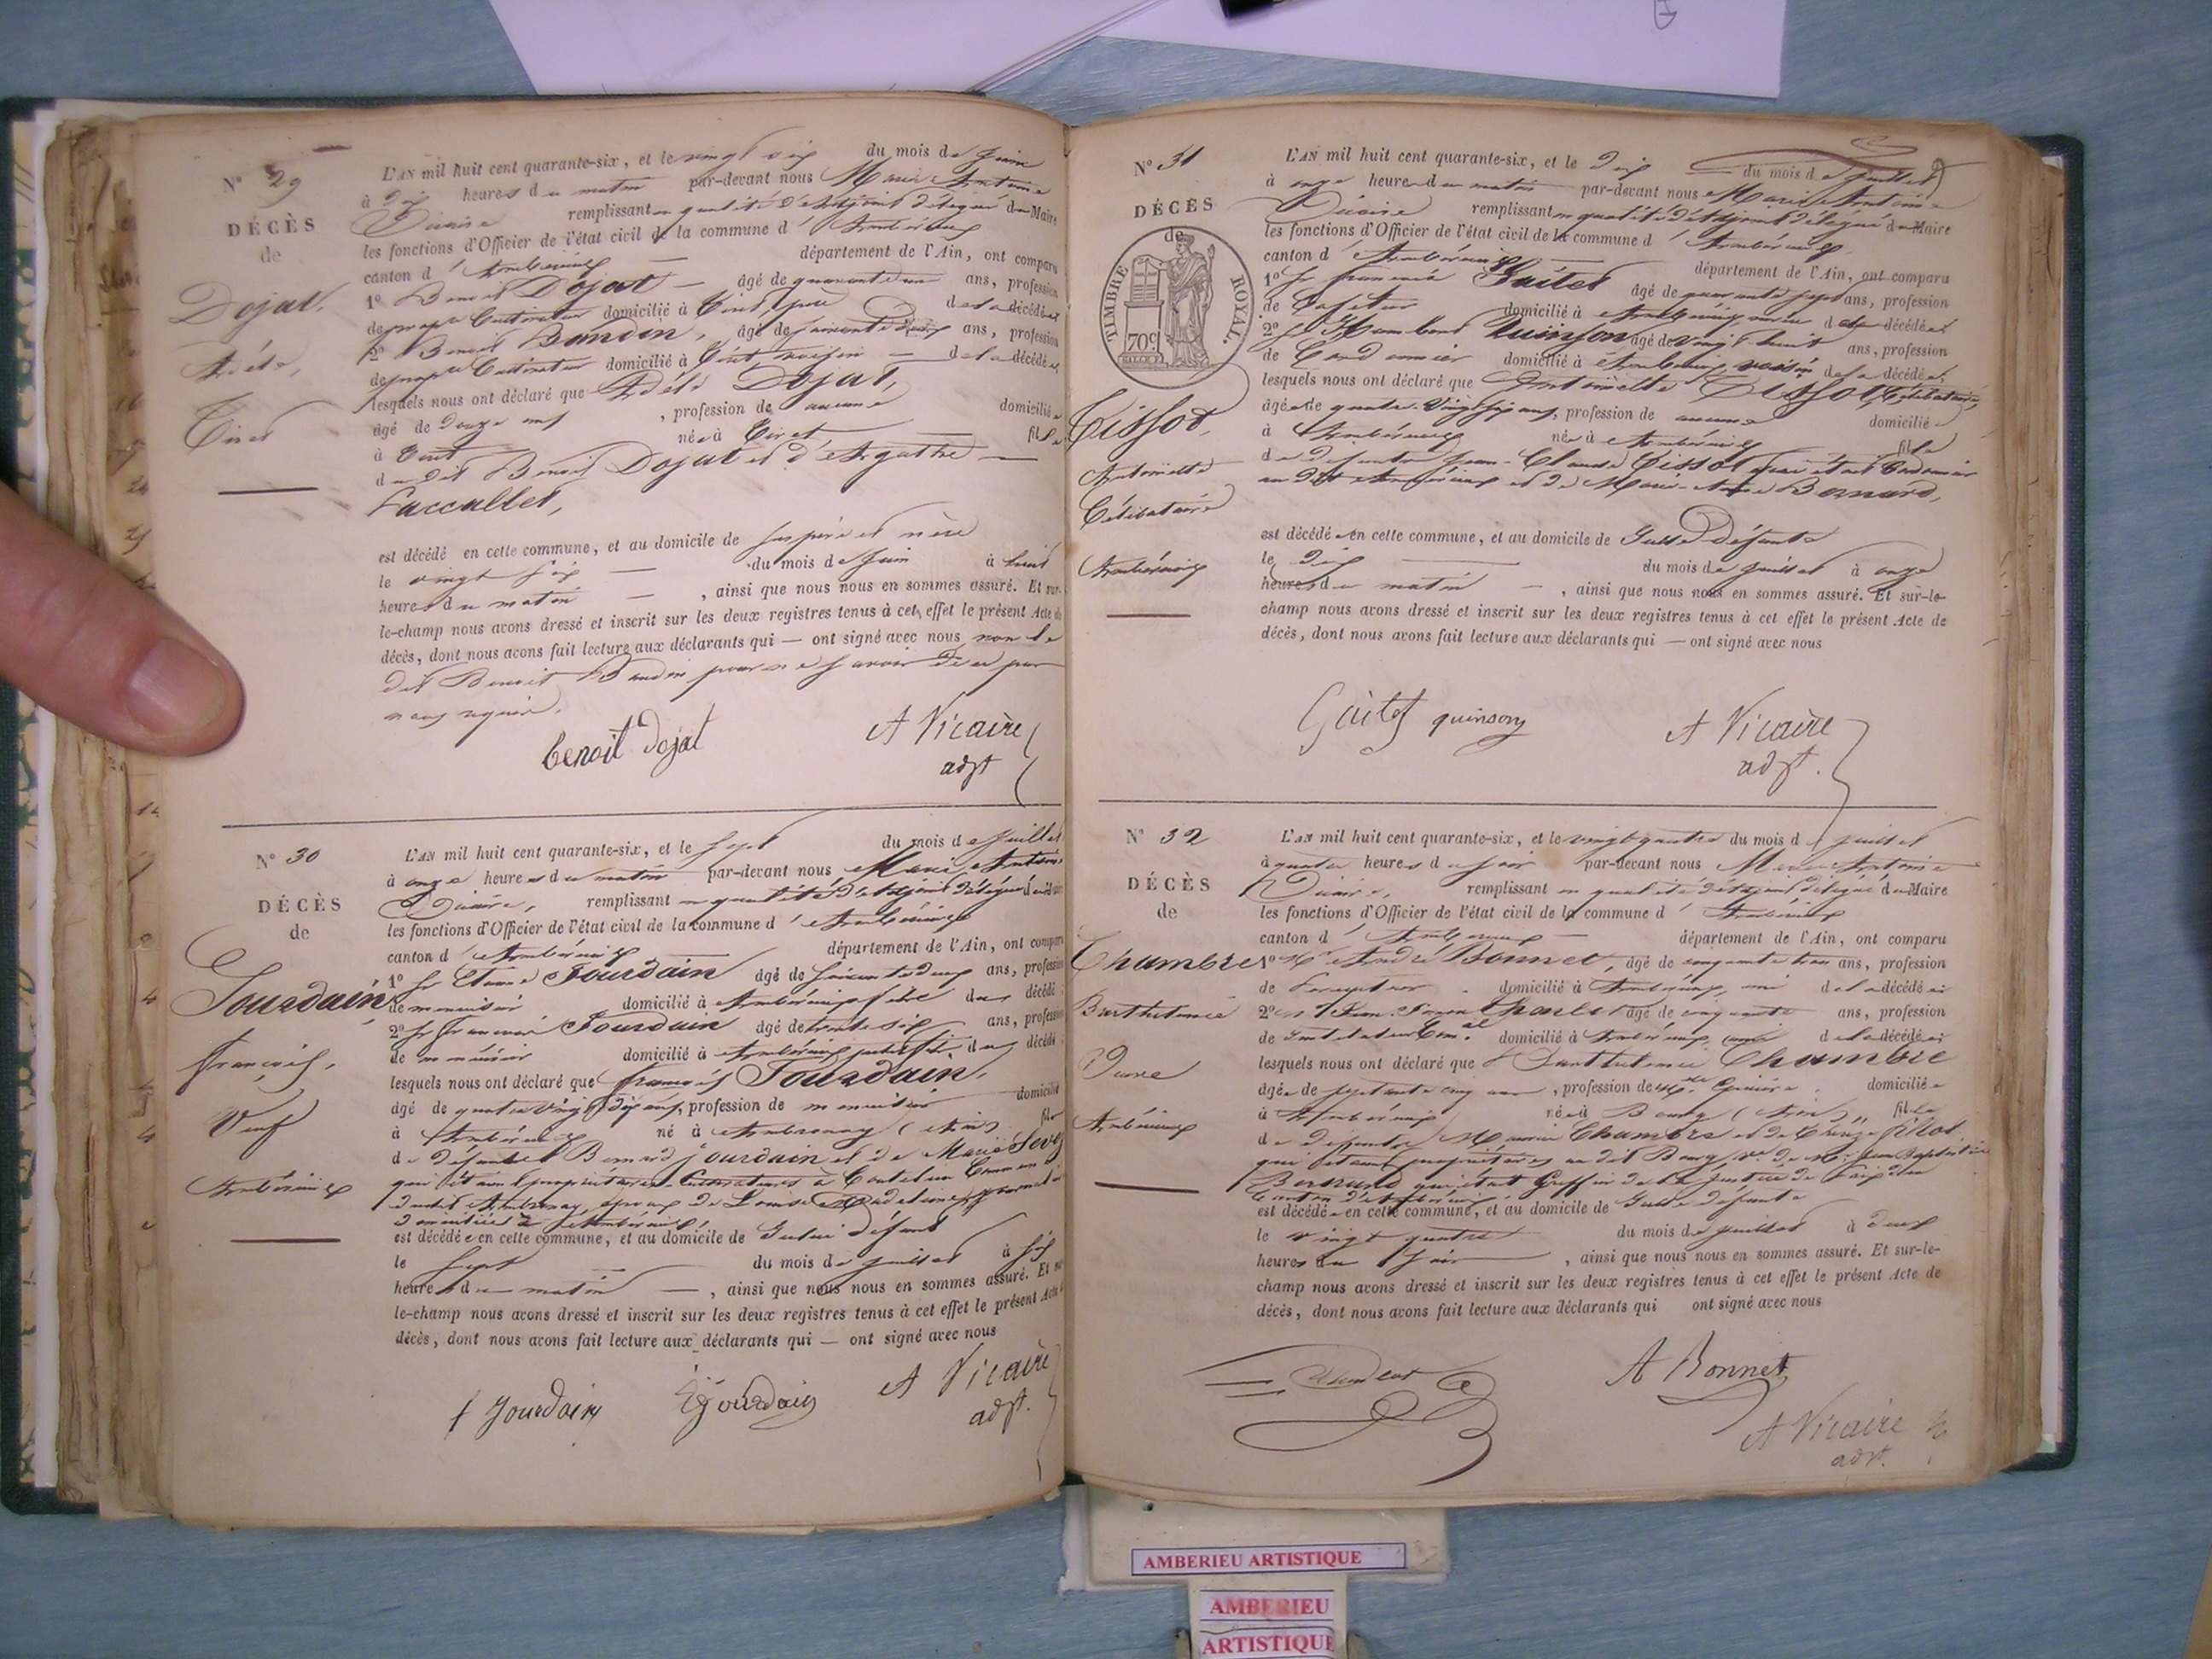 N° 29
DÉCÈS
de
Dojat.
Adèle,
Tiret
L'AN mil huit cent quarante-six, et le vingt six du mois de juin
à dix heures du matin par-devant nous Marie Antoine
Vicaire remplissant en qualité d'adjoint délégué du Maire
les fonctions d'Officier de l'état civil de la commune d'Ambérieux
canton d'Ambérieux département de l'Ain, ont comparu
1° Benoit Dojat âgé de quarante un ans, profession
de propre Cultivateur domicilié à Tiret, père de la décédée
2° Benoit Baudin, âgé de soixante deux ans, profession
de propre Cultivateur domicilié à Tiret voisin de la décédée,
lesquels nous ont déclaré que Adèle Dojat,
âgé de douze ans, profession de aucune domiciliée
à Tiret née à Tiret fille
du dit Benoit Dojat et d'Agathe
Laccallet,
est décédé en cette commune, et au domicile de ses père et mère
le vingt six du mois de Juin à huit
heures du matin, ainsi que nous nous en sommes assuré. Et sur-
le-champ nous avons dressé et inscrit sur les deux registres tenus à cet effet le présent Acte de
décès, dont nous avons fait lecture aux déclarants qui — ont signé avec nous non le
dit Benoit Baudin pour ne savoir de ce par
nous requis.
benoit dojat
A Vicaire
adjt
N° 30
DÉCÈS
de
Jourdain,
françois,
Veuf
Ambérieux
L'AN mil huit cent quarante-six, et le sept du mois de juillet
à onze heures du matin par-devant nous Marie Antoine
Vicaire, remplissant en qualité d'adjoint délégué du Maire
les fonctions d'Officier de l'état civil de la commune d'Ambérieux
canton d'Ambérieux département de l'Ain, ont comparu
1° Sr Etienne Jourdain âgé de soixante deux ans, profession
de menuisier domicilié à Ambérieux frère du décédé
2° Sr francois Jourdain âgé de trente six ans, profession
de menuisier domicilié à Ambérieux du décédé
lesquels nous ont déclaré que françois Jourdain,
âgé de quatre vingt dix ans, profession de menuisier domicilié
à Ambérieux né à Ambronay (Ain) fils
de défunt Bernard Jourdain et de Marie Seve
qui étaient propriétaires Cultivateurs à Coutelieu Commune
dudit Ambronay, époux de Louise
domiciliée à Ambérieux,
est décédé en cette commune, et au domicile de Gelui défunt
le sept du mois de juillet à six
heures du matin, ainsi que nous nous en sommes assuré. Et sur-
le-champ nous avons dressé et inscrit sur les deux registres tenus à cet effet le présent Acte de
décès, dont nous avons fait lecture aux déclarants qui — ont signé avec nous
f Jourdain
E Jourdain
A Vicaire
adjt.
N° 31
DÉCÈS
de
TIMBRE ROYAL.
70c
Tissot,
Antoinette
Célibataire
Ambérieux
L'AN mil huit cent quarante-six, et le dix du mois de juillet
à onze heures du matin par-devant nous Marie Antoine
Vicaire remplissant en qualité d'adjoint délégué du Maire
les fonctions d'Officier de l'état civil de la commune d'Ambérieux
canton d'Ambérieux département de l'Ain, ont comparu
1° Sr francois Gaitet âgé de quarante sept ans, profession
de Cafetier domicilié à Ambérieux, neveu de la décédée
2° Sr Humbert Quinson âgé de vingt huit ans, profession
de Cordonnier domicilié à Ambérieux voisin de la décédée,
lesquels nous ont déclaré que Antoinette Tissot, Célibataire,
âgée de quatre-vingt six ans, profession de aucune domiciliée
à Ambérieux née à Ambérieux fille
de défunts Jean-Claude Tissot qui était Cordonnier
au dit Ambérieux et de Marie-Anne Bernard,
est décédée en cette commune, et au domicile de Gelle Défunte
le dix du mois de juillet à onze
heures du matin, ainsi que nous nous en sommes assuré. Et sur-le-
champ nous avons dressé et inscrit sur les deux registres tenus à cet effet le présent Acte de
décès, dont nous avons fait lecture aux déclarants qui — ont signé avec nous
Gaitet quinson
A Vicaire
adjt.
N° 32
DÉCÈS
de
Chambre
Barthelemie
Veuve
Ambérieux
L'AN mil huit cent quarante-six, et le vingt quatre du mois de juillet
à quatre heures du soir par-devant nous Marie Antoine
Vicaire, remplissant en qualité d'adjoint délégué du Maire
les fonctions d'Officier de l'état civil de la commune d'Ambérieux
canton d'Ambérieux département de l'Ain, ont comparu
1° Mr André Bonnet, âgé de cinquante trois ans, profession
de Percepteur domicilié à Ambérieux, ami de la décédée
2° âgé de cinquante ans, profession
de Instituteur Comal domicilié à Ambérieux, ami de la décédée
lesquels nous ont déclaré que Barthelemie Chambre
âgée de septante cinq ans, profession de domiciliée
à Ambérieux née à Bourg (Ain), fille
de défunts Maurice Chambre et de Thérèse
qui étaient propriétaires au dit Bourg Ve de Mr Jean Baptiste
Bertrand qui était Greffier de la Justice de Paix du
Canton d'Ambérieux,
est décédée en cette commune, et au domicile de Gelle défunte
le vingt quatre du mois de juillet à deux
heures du soir, ainsi que nous nous en sommes assuré. Et sur-le-
champ nous avons dressé et inscrit sur les deux registres tenus à cet effet le présent Acte de
décès, dont nous avons fait lecture aux déclarants qui ont signé avec nous
A Bonnet
A Vicaire
adjt.
AMBERIEU ARTISTIQUE
AMBERIEU
ARTISTIQUE